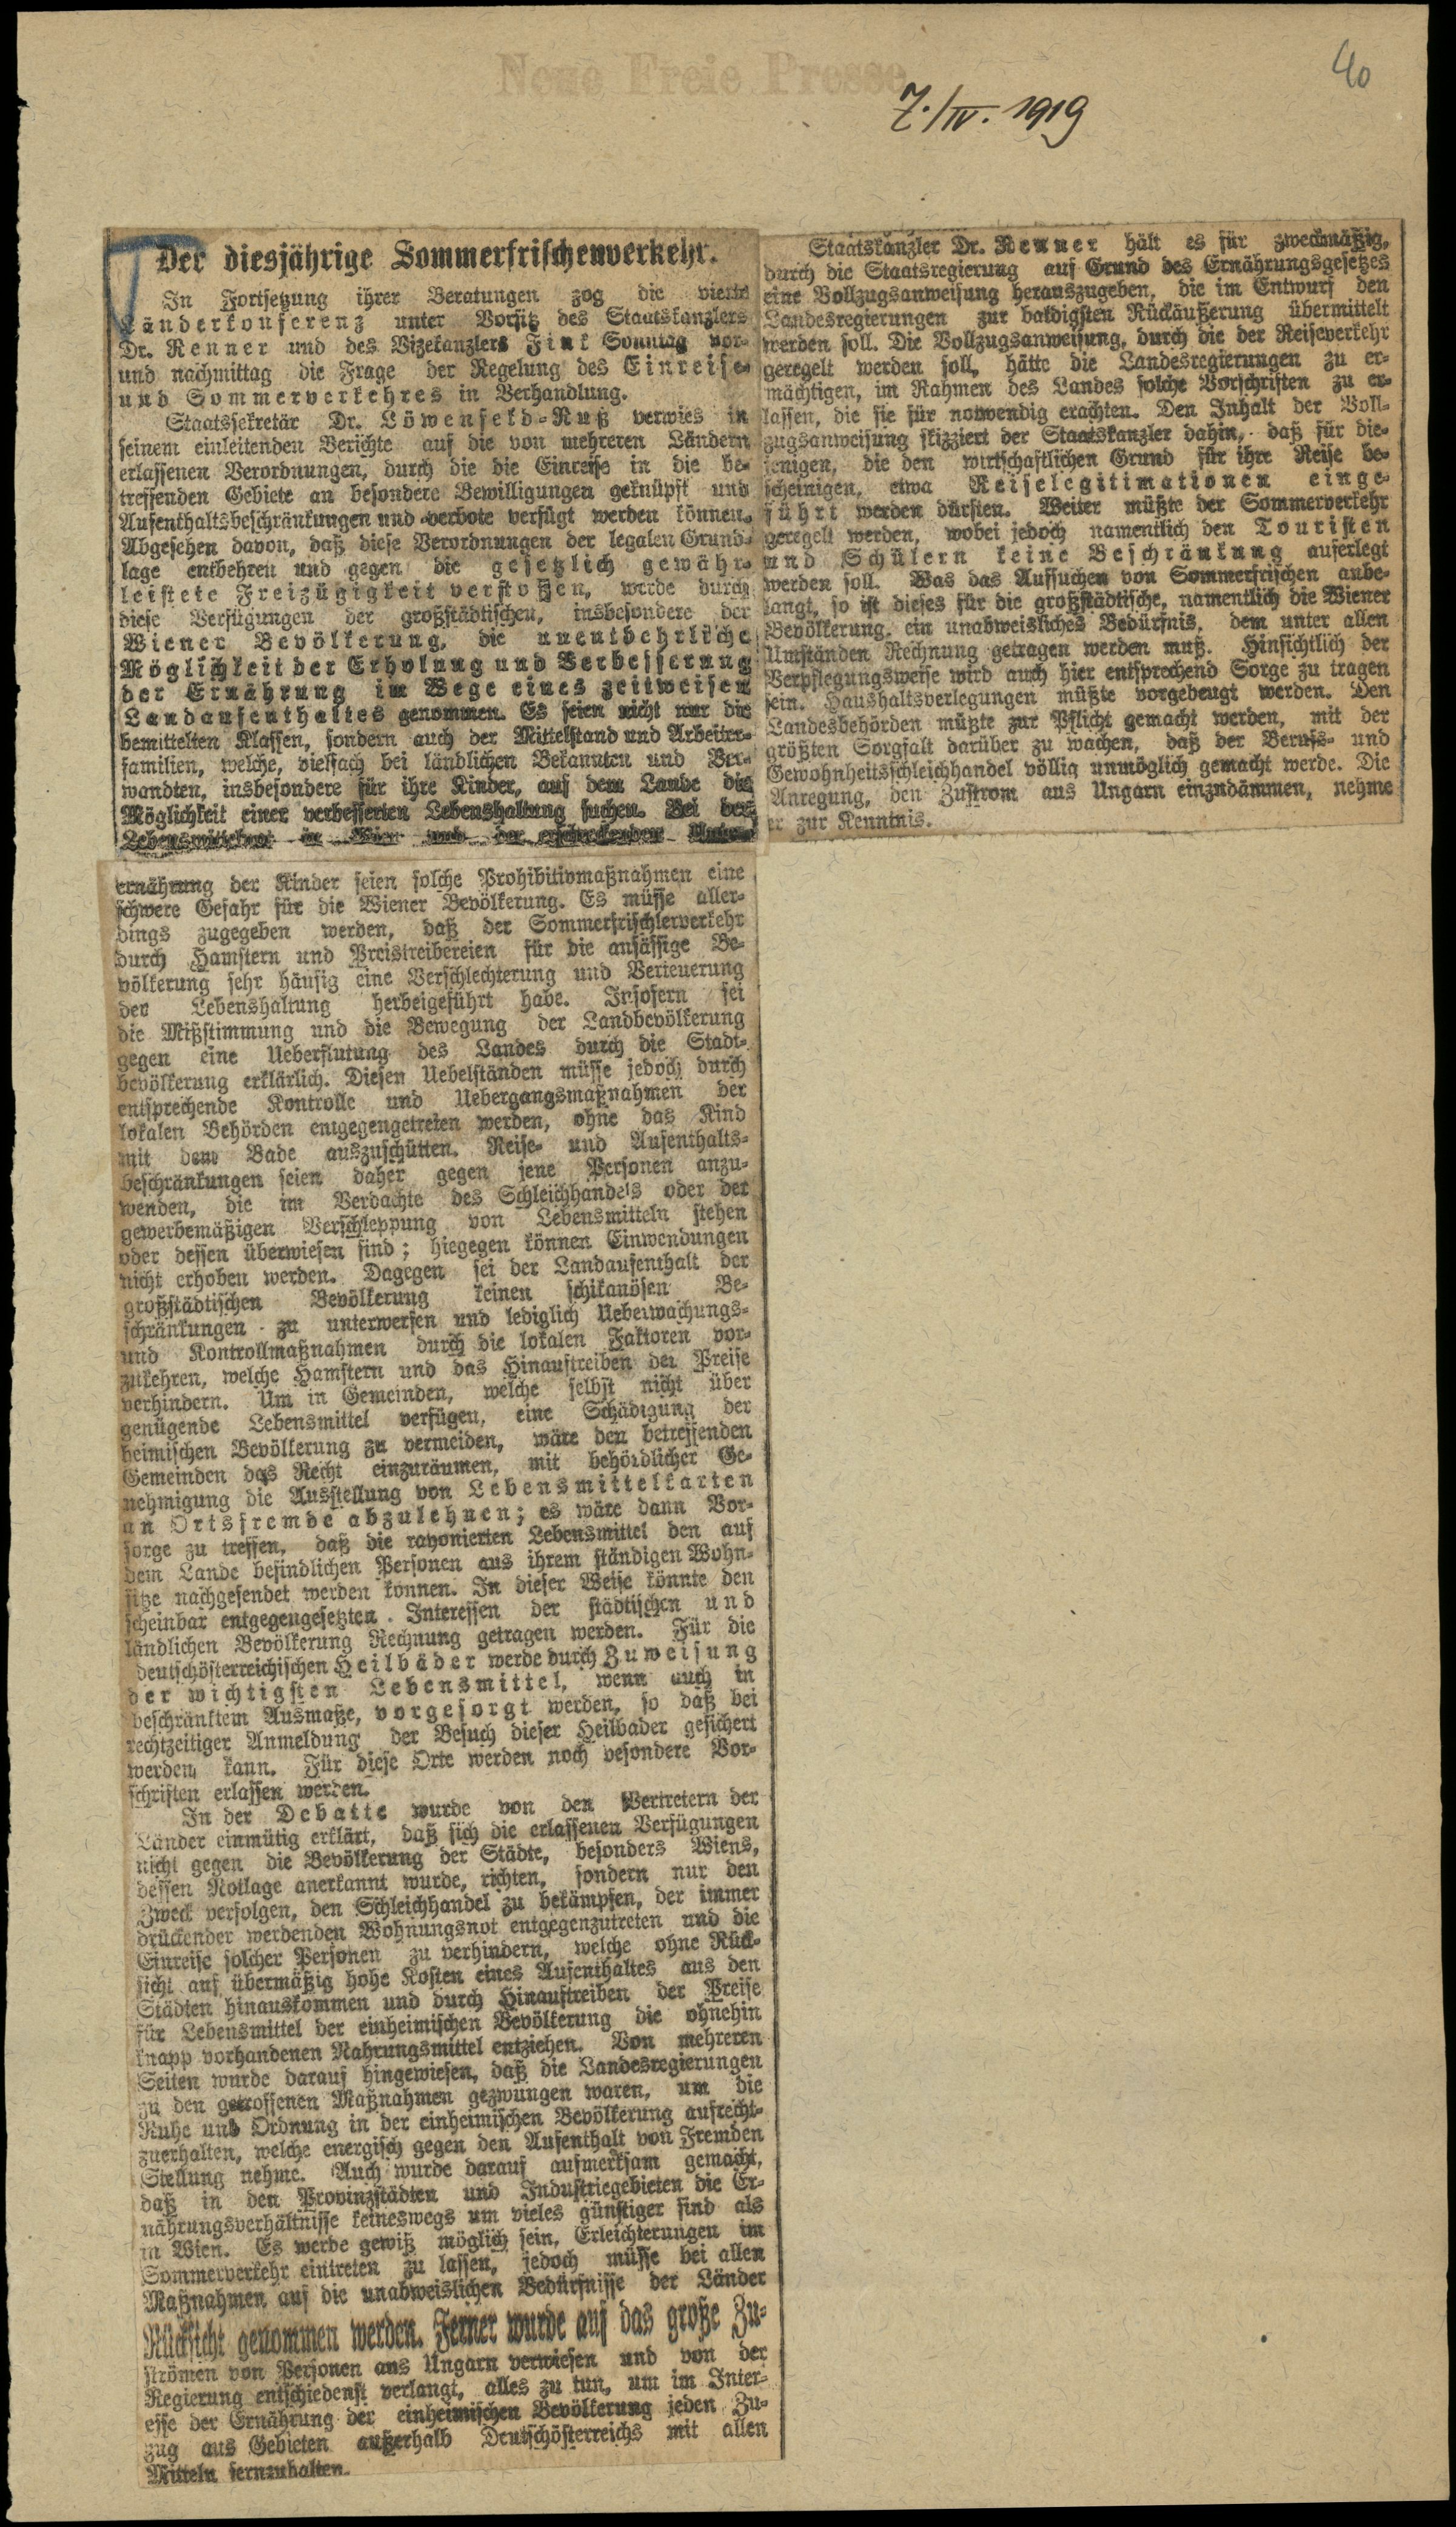 Neue Freie Presse
7./IV. 1919
40
Der diesjährige Sommerfrischenverkehr.
In Fortsetzung ihrer Beratungen zog die vierte
Länderkonferenz unter Vorsitz des Staatskanzlers
Dr. Renner und des Vizekanzlers Fink Sonntag vor-
und nachmittag die Frage der Regelung des Einreise-
und Sommerverkehres in Verhandlung.
Staatssekretär Dr. Löwenfeld-Ruß verwies in
seinem einleitenden Berichte auf die von mehreren Ländern
erlassenen Verordnungen, durch die die Einreise in die be-
treffenden Gebiete an besondere Bewilligungen geknüpft und
Aufenthaltsbeschränkungen und -verbote verfügt werden können.
Abgesehen davon, daß diese Verordnungen der legalen Grund-
lage entbehren und gegen die gesetzlich gewähr-
leistete Freizügigkeit verstoßen, werde durch
diese Verfügungen der großstädtischen, insbesondere der
Wiener Bevölkerung, die unentbehrliche
Möglichkeit der Erholung und Verbesserung
der Ernährung im Wege eines zeitweisen
Landaufenthaltes genommen. Es seien nicht nur die
bemittelten Klassen, sondern auch der Mittelstand und Arbeiter-
familien, welche, vielfach bei ländlichen Bekannten und Ver-
wandten, insbesondere für ihre Kinder, auf dem Lande die
Möglichkeit einer verbesserten Lebenshaltung suchen. Bei der
Lebensmittelnot in Wien und der erschreckenden Unter-
ernährung der Kinder seien solche Prohibitivmaßnahmen eine
schwere Gefahr für die Wiener Bevölkerung. Es müsse aller-
dings zugegeben werden, daß der Sommerfrischlerverkehr
durch Hamstern und Preistreibereien für die ansässige Be-
völkerung sehr häufig eine Verschlechterung und Verteuerung
der Lebenshaltung herbeigeführt habe. Insofern sei
die Mißstimmung und die Bewegung der Landbevölkerung
gegen eine Ueberflutung des Landes durch die Stadt-
bevölkerung erklärlich. Diesen Uebelständen müsse jedoch durch
entsprechende Kontrolle und Uebergangsmaßnahmen der
lokalen Behörden entgegengetreten werden, ohne das Kind
mit dem Bade auszuschütten. Reise- und Aufenthalts-
beschränkungen seien daher gegen jene Personen anzu-
wenden, die im Verdachte des Schleichhandels oder der
gewerbemäßigen Verschleppung von Lebensmitteln stehen
oder dessen überwiesen sind; hiegegen können Einwendungen
nicht erhoben werden. Dagegen sei der Landaufenthalt der
großstädtischen Bevölkerung keinen schikanösen Be-
schränkungen zu unterwerfen und lediglich Ueberwachungs-
und Kontrollmaßnahmen durch die lokalen Faktoren vor-
zukehren, welche Hamstern und das Hinauftreiben der Preise
verhindern. Um in Gemeinden, welche selbst nicht über
genügende Lebensmittel verfügen, eine Schädigung der
heimischen Bevölkerung zu vermeiden, wäre den betreffenden
Gemeinden das Recht einzuräumen, mit behördlicher Ge-
nehmigung die Ausstellung von Lebensmittelkarten
an Ortsfremde abzulehnen; es wäre dann Vor-
sorge zu treffen, daß die rayonierten Lebensmittel den auf
dem Lande befindlichen Personen aus ihrem ständigen Wohn-
sitze nachgesendet werden können. In dieser Weise könnte den
scheinbar entgegengesetzten Interessen der städtischen und
ländlichen Bevölkerung Rechnung getragen werden. Für die
deutschösterreichischen Heilbäder werde durch Zuweisung
der wichtigsten Lebensmittel, wenn auch in
beschränktem Ausmaße, vorgesorgt werden, so daß bei
rechtzeitiger Anmeldung der Besuch dieser Heilbäder gesichert
werden kann. Für diese Orte werden noch besondere Vor-
schriften erlassen werden.
In der Debatte wurde von den Vertretern der
Länder einmütig erklärt, daß sich die erlassenen Verfügungen
nicht gegen die Bevölkerung der Städte, besonders Wiens,
dessen Notlage anerkannt wurde, richten, sondern nur den
Zweck verfolgen, den Schleichhandel zu bekämpfen, der immer
drückender werdenden Wohnungsnot entgegenzutreten und die
Einreise solcher Personen zu verhindern, welche ohne Rück-
sicht auf übermäßig hohe Kosten eines Aufenthaltes aus den
Städten hinauskommen und durch Hinauftreiben der Preise
für Lebensmittel der einheimischen Bevölkerung die ohnehin
knapp vorhandenen Nahrungsmittel entziehen. Von mehreren
Seiten wurde darauf hingewiesen, daß die Landesregierungen
zu den getroffenen Maßnahmen gezwungen waren, um die
Ruhe und Ordnung in der einheimischen Bevölkerung aufrecht-
zuerhalten, welche energisch gegen den Aufenthalt von Fremden
Stellung nehme. Auch wurde darauf aufmerksam gemacht,
daß in den Provinzstädten und Industriegebieten die Er-
nährungsverhältnisse keineswegs um vieles günstiger sind als
in Wien. Es werde gewiß möglich sein, Erleichterungen im
Sommerverkehr eintreten zu lassen, jedoch müsse bei allen
Maßnahmen auf die unabweislichen Bedürfnisse der Länder
Rücksicht genommen werden. Ferner wurde auf das große Zu-
strömen von Personen aus Ungarn verwiesen und von der
Regierung entschiedenst verlangt, alles zu tun, um im Inter-
esse der Ernährung der einheimischen Bevölkerung jeden Zu-
zug aus Gebieten außerhalb Deutschösterreichs mit allen
Mitteln fernzuhalten.
Staatskanzler Dr. Renner hält es für zweckmäßig,
durch die Staatsregierung auf Grund des Ernährungsgesetzes
eine Vollzugsanweisung herauszugeben, die im Entwurf den
Landesregierungen zur baldigsten Rückäußerung übermittelt
werden soll. Die Vollzugsanweisung, durch die der Reiseverkehr
geregelt werden soll, hätte die Landesregierungen zu er-
mächtigen, im Rahmen des Landes solche Vorschriften zu er-
lassen, die sie für notwendig erachten. Den Inhalt der Voll-
zugsanweisung skizziert der Staatskanzler dahin, daß für die-
jenigen, die den wirtschaftlichen Grund für ihre Reise be-
scheinigen, etwa Reiselegitimationen einge-
führt werden dürften. Weiter müßte der Sommerverkehr
geregelt werden, wobei jedoch namentlich den Touristen
und Schülern keine Beschränkung auferlegt
werden soll. Was das Aufsuchen von Sommerfrischen anbe-
langt, so ist dieses für die großstädtische, namentlich die Wiener
Bevölkerung, ein unabweisliches Bedürfnis, dem unter allen
Umständen Rechnung getragen werden muß. Hinsichtlich der
Verpflegungsweise wird auch hier entsprechend Sorge zu tragen
sein. Haushaltsverlegungen müßte vorgebeugt werden. Den
Landesbehörden müßte zur Pflicht gemacht werden, mit der
größten Sorgfalt darüber zu wachen, daß der Berufs- und
Gewohnheitsschleichhandel völlig unmöglich gemacht werde. Die
Anregung, den Zustrom aus Ungarn einzudämmen, nehme
er zur Kenntnis.